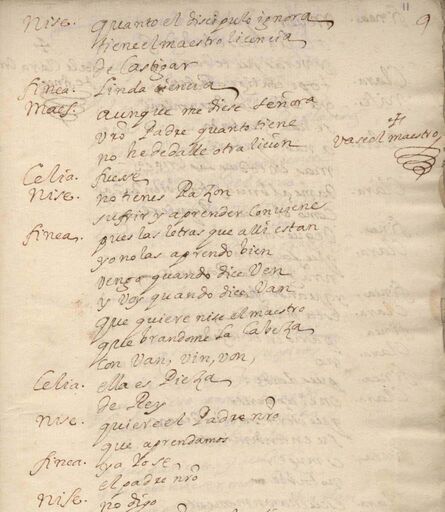 11
9
Nise. quanto el discipulo ignora
tiene el maestro licencia
de Castigar
finea. Linda ciencia
Maes. aunque me diese señora
vro Padre quanto tiene
no he de dalle otra licion vase el maestro
Celia. fuese
Nise. no tienes Razon
suffrir y aprender Conviene
finea. pues las letras que alli estan
yo no las aprendo bien
vengo quando dice Ven
y Voy quando dice, Van
que quiere nise el maestro
quebrandome La Cabeza
con Van, Vin, Von,
Celia. ella es Pieza
de Rey
nise. quiere el Padre nro
que aprendamos
finea. ya yo se
el padre nro
Nise. no digo